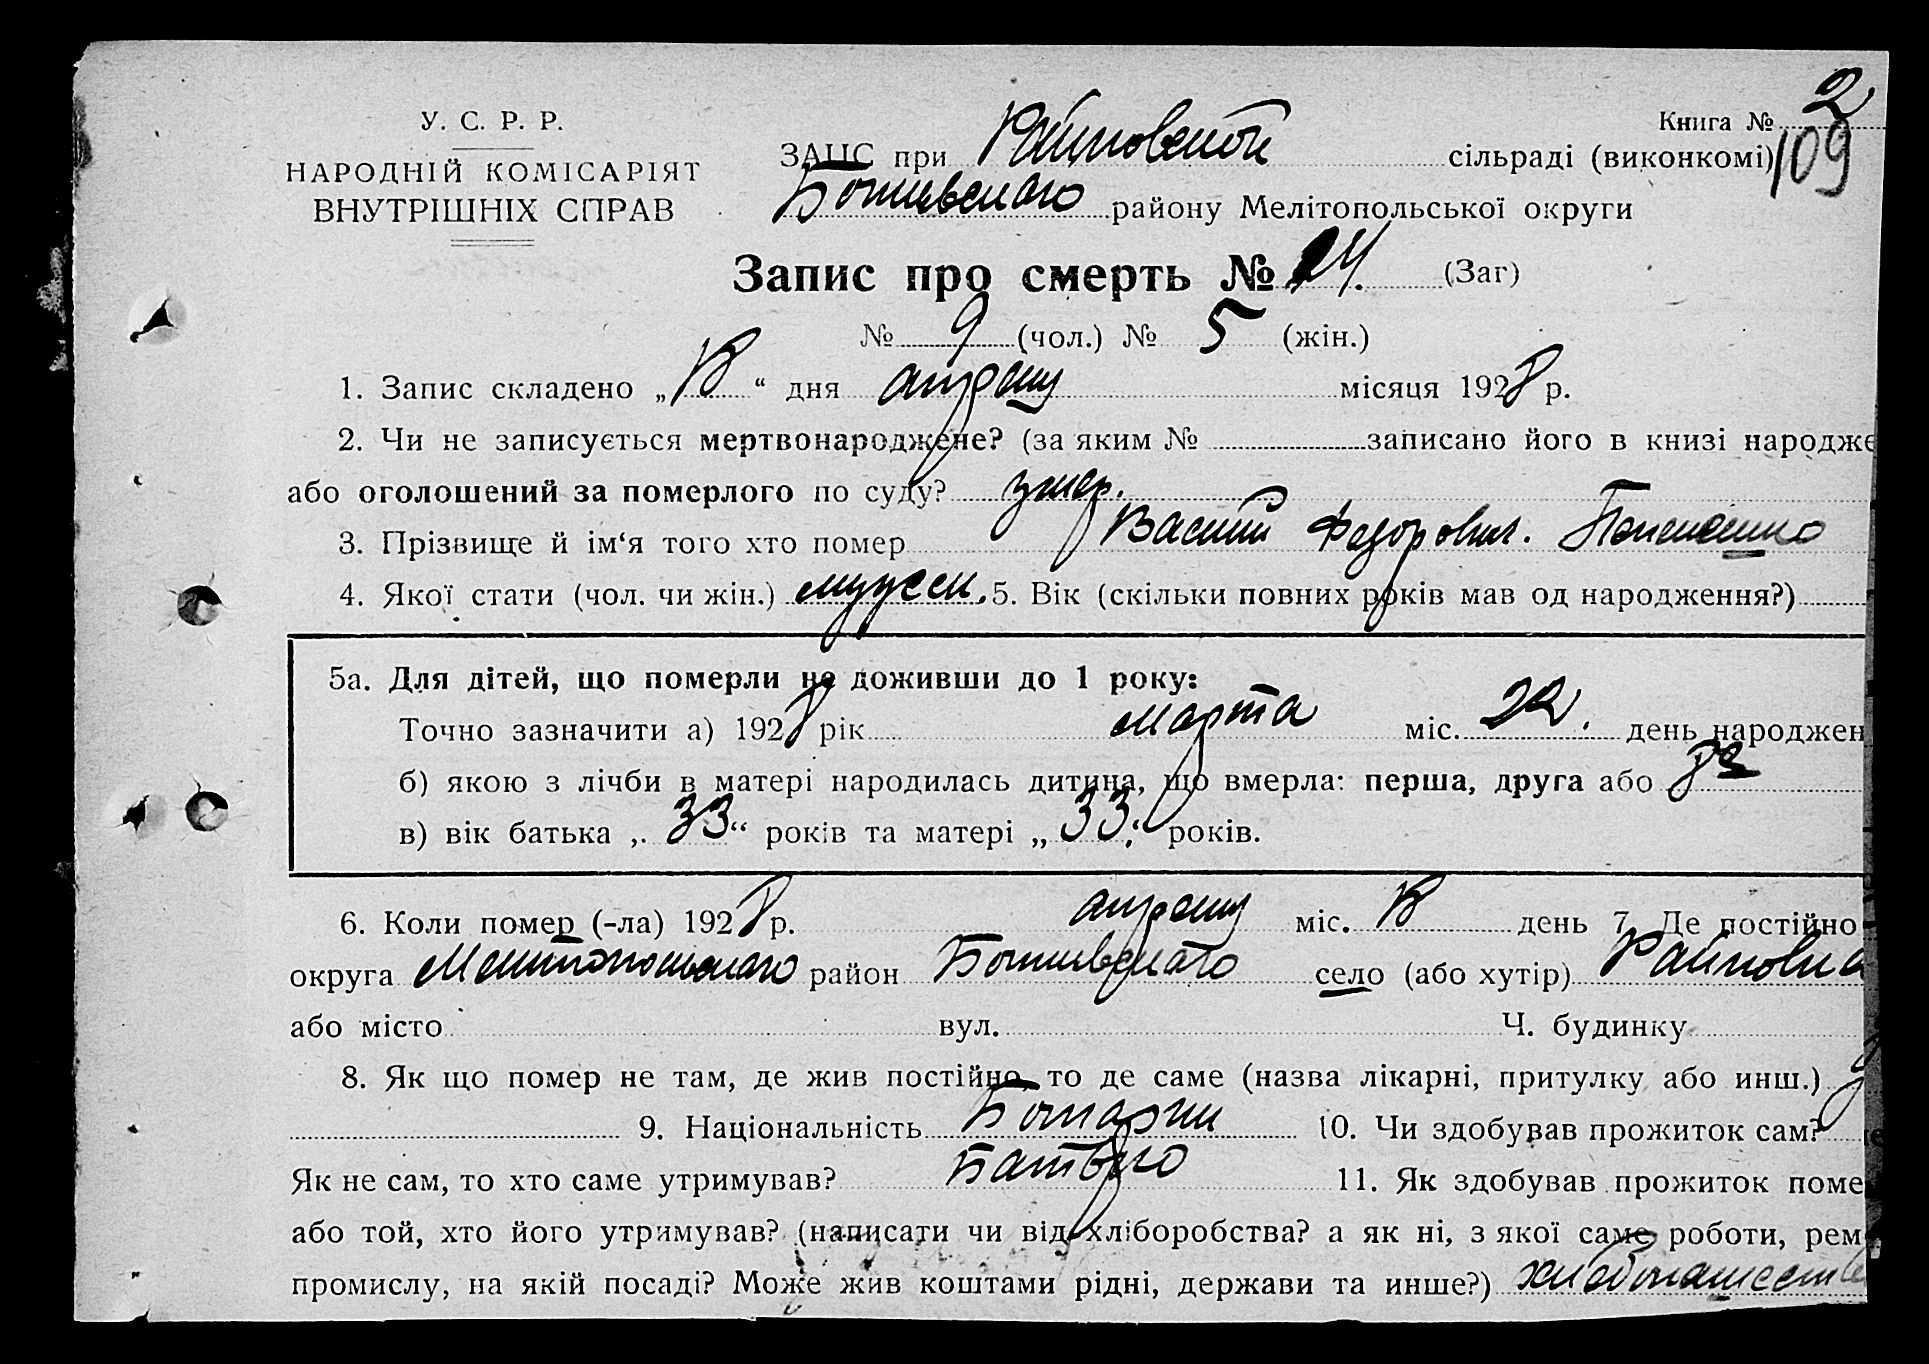 У. С. Р. Р.
НАРОДНІЙ КОМІСАРІЯТ
ВНУТРІШНІХ СПРАВ
Книга № 2
109
ЗАЦС при Райновской сільраді (виконкомі)
района Мелітопольської округи
Запис про смерть № 14. (Заг)
№ 9 (чол.) № 5 (жін.)
1. Запис складено „ “ дня апреля місяця 1928 р.
2. Чи не записується мертвонароджене? (за яким № записано його в книзі народже
або оголошений за померлого по суду? умер.
3. Прізвище й ім‘я того хто помер Василий Федорович.
4. Якої стати (чол. чи жін.) мужск. 5. Вік (скільки повних років мав од народження?)
5а. Для дітей, що померли не доживши до 1 року:
Точно зазначити а) 1928 рік марта міс. 22. день народжен
б) якою з лічби в матері народилась дитина, що вмерла: перша, друга або
в) вік батька „ 33 “ років та матері „ 33 “ років.
6. Коли помер (-ла) 1928 р. апреля міс. день 7. Де постійно
округа Мелитопольского район село (або хутір) Райновка
або місто вул. Ч. будинку
8. Як що помер не там, де жив постійно, то де саме (назва лікарні, притулку або инш.)
9. Національність Болгарин 10. Чи здобував прожиток сам?
Як не сам, то хто саме утримував? 11. Як здобував прожиток поме
або той, хто його утримував? (написати чи від хліборобства? а як ні, з якої саме роботи, рем
промислу, на якій посаді? Може жив коштами рідні, держави та инше?) хлебопашеств